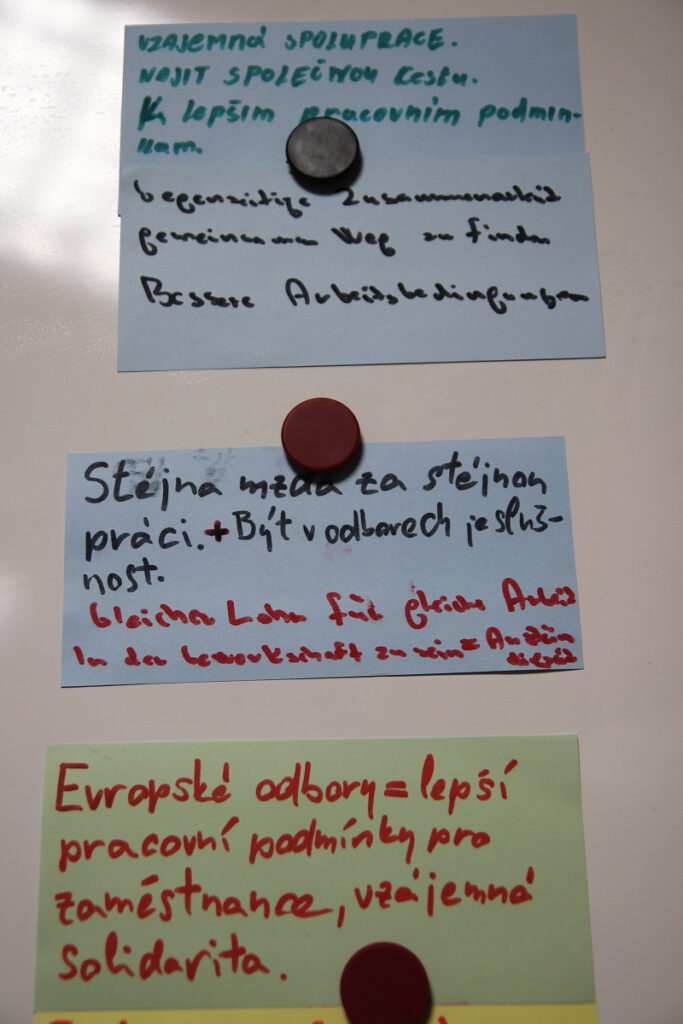 VZAJEMNÁ SPOLUPRACE.
NAJIT SPOLEČNOU CESTU.
K lepšim pracovním podmin-
kam.
Gegenseitige Zusammenarbeit
gemeinsamen Weg zu finden
Bessere Arbeitsbedingungen
Stéjna mzda za stéjnou
práci. + Být v odborech je sluš-
nost.
Gleicher Lohn für gleiche Arbeit
In der Gewerkschaft zu sein =
Evropské odbory = lepší
pracovní podmínky pro
zaméstnance, vzájemná
solidarita.